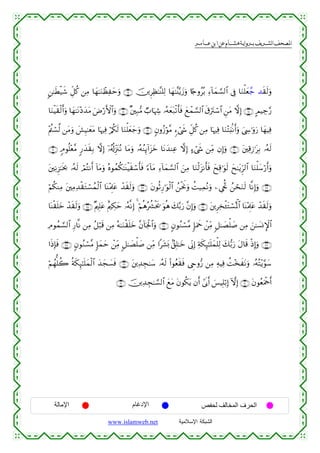 المصحف الشريف برواية هشام عن ابن عامر
وَلَقَد جَّعَلْنَا فِي ٱلسَّمَآءِ بُرُوجًا وَزَيَّنَّٰهَا لِلنَّٰظِرِينَ وَحَفِظْنَٰهَا مِن كُلِّ شَيْطَٰنٍ
رَّجِيمٍ إِلَّا مَنِ ٱسْتَرَقَ ٱلسَّمْعَ فَأَتْبَعَهُۥ شِهَابٌ مُّبِينٌ وَٱلْأَرْضَ مَدَدْنَٰهَا وَأَلْقَيْنَا
فِيهَا رَوَٰسِيَ وَأَنۢبَتْنَا فِيهَا مِن كُلِّ شَيْءٍ مَّوْزُونٍ وَجَعَلْنَا لَكُمْ فِيهَا مَعَٰيِشَ وَمَن لَّسْتُمْ
لَهُۥ بِرَٰزِقِينَ وَإِن مِّن شَيْءٍ إِلَّا عِندَنَا خَزَآئِنُهُۥ وَمَا نُنَزِّلُهُۥٓ إِلَّا بِقَدَرٍ مَّعْلُومٍ
وَأَرْسَلْنَا ٱلرِّيَٰحَ لَوَٰقِحَ فَأَنزَلْنَا مِنَ ٱلسَّمَآءِ مَآءً فَأَسْقَيْنَٰكُمُوهُ وَمَآ أَنتُمْ لَهُۥ بِخَٰزِنِينَ
وَإِنَّا لَنَحْنُ نُحْيِۦ وَنُمِيتُ وَنَحْنُ ٱلْوَٰرِثُونَ وَلَقَدْ عَلِمْنَا ٱلْمُسْتَقْدِمِينَ مِنكُمْ
وَلَقَدْ عَلِمْنَا ٱلْمُسْتَـْٔخِرِينَ وَإِنَّ رَبَّكَ هُوَ يَحْشُرُهُمْ إِنَّهُۥ حَكِيمٌ عَلِيمٌ وَلَقَدْ خَلَقْنَا
ٱلْإِنسَٰنَ مِن صَلْصَٰلٍ مِّنْ حَمَإٍ مَّسْنُونٍ وَٱلْجَآنَّ خَلَقْنَٰهُ مِن قَبْلُ مِن نَّارِ ٱلسَّمُومِ
وَإِذْ قَالَ رَبُّكَ لِلْمَلَٰٓئِكَةِ إِنِّي خَٰلِقٌۢ بَشَرًا مِّن صَلْصَٰلٍ مِّنْ حَمَإٍ مَّسْنُونٍ فَإِذَا
سَوَّيْتُهُۥ وَنَفَخْتُ فِيهِ مِن رُّوحِي فَقَعُوا۟ لَهُۥ سَٰجِدِينَ فَسَجَدَ ٱلْمَلَٰٓئِكَةُ كُلُّهُمْ
أَجْمَعُونَ إِلَّآ إِبْلِيسَ أَبَىٰٓ أَن يَكُونَ مَعَ ٱلسَّٰجِدِينَ
الحرف المخالف لحفص الإدغام الإمالة
الشبكة الإسلامية www.islamweb.net